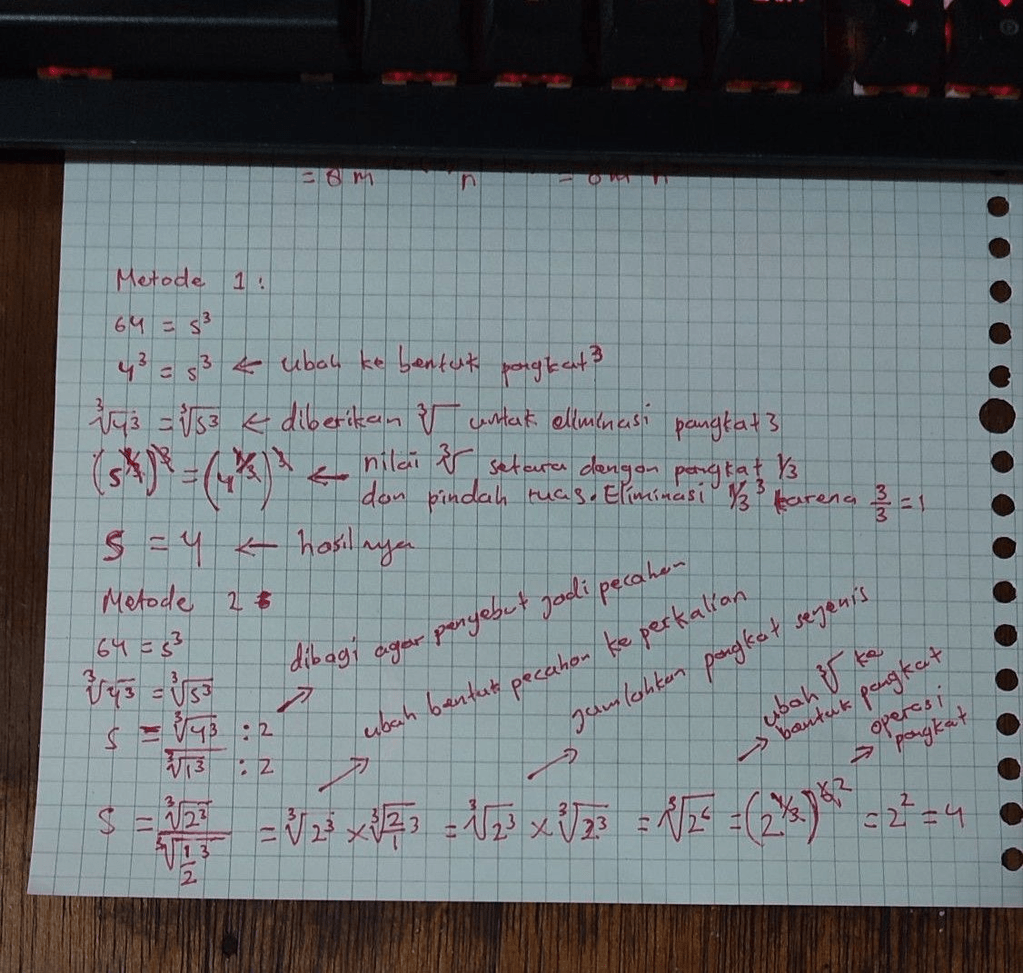 = 8 m n = 8m n
Metode 1 :
64 = s³
4³ = s³ ← ubah ke bentuk pangkat 3
∛4³ = ∛s³ ← diberikan ∛ untuk eliminasi pangkat 3
(s^⅓)³ = (4^⅓)³ ← nilai ∛ setara dengan pangkat 1/3
dan pindah ruas. Eliminasi 1/3 ³ karena 3/3 = 1
s = 4 ← hasilnya
Metode 2 :
64 = s³
∛4³ = ∛s³
s = ∛4³ : 2
∛1³ : 2
dibagi agar penyebut jadi pecahan
ubah bentuk pecahan ke perkalian
jumlahkan pangkat sejenis
ubah ∛ ke
bentuk pangkat
operasi
pangkat
s = ∛2³ / ∛(1/2)³ = ∛2³ × ∛(2/1)³ = ∛2³ × ∛2³ = ∛2⁶ = (2^⅓)^6 2 = 2² = 4